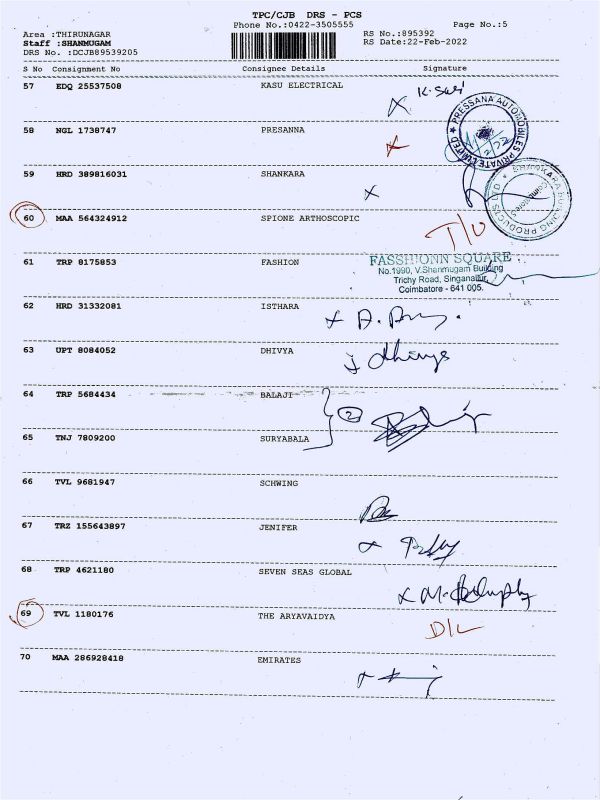 TPC/CJB DRS - PCS
Phone No.:0422-3505555
Page No.:5
Area :THIRUNAGAR
RS No.:895392
Staff :SHANMUGAM
RS Date:22-Feb-2022
DRS No. :DCJB89539205
S No Consignment No Consignee Details Signature
57 EDQ 25537508 KASU ELECTRICAL
58 NGL 1738747 PRESANNA
PRESSANA AUTOMOBILES PRIVATE LIMITED
59 HRD 389816031 SHANKARA
SHANKARA BUILDING PRODUCTS LTD
60 MAA 564324912 SPIONE ARTHOSCOPIC
61 TRP 8175853 FASHION
FASSHIONN SQUARE
No.1990, V.Shanmugam Building
Trichy Road, Singanallur,
Coimbatore - 641 005.
62 HRD 31332081 ISTHARA
63 UPT 8084052 DHIVYA
64 TRP 5684434 BALAJI
2
65 TNJ 7809200 SURYABALA
66 TVL 9681947 SCHWING
67 TRZ 155643897 JENIFER
68 TRP 4621180 SEVEN SEAS GLOBAL
69 TVL 1180176 THE ARYAVAIDYA
D/L
70 MAA 286928418 EMIRATES